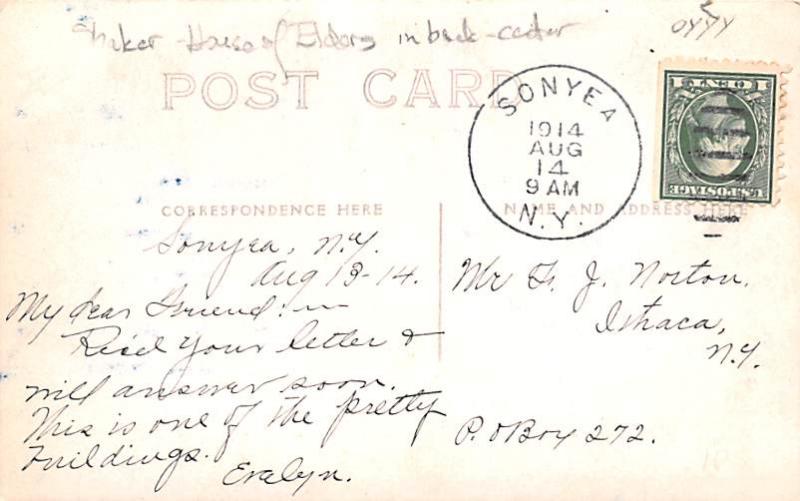 Shaker House of Elders in back-center
POST CARD
SONYEA
1914
AUG
14
9 AM
N.Y.
U.S. POSTAGE
CORRESPONDENCE HERE
NAME AND ADDRESS HERE
Sonyea, N.Y.
Aug 13-14.
My dear Friend:—
Rec'd your letter &
will answer soon.
This is one of the pretty
buildings.
Evelyn.
Mr F. J. Norton.
Ithaca,
N.Y.
P.O Box 272.